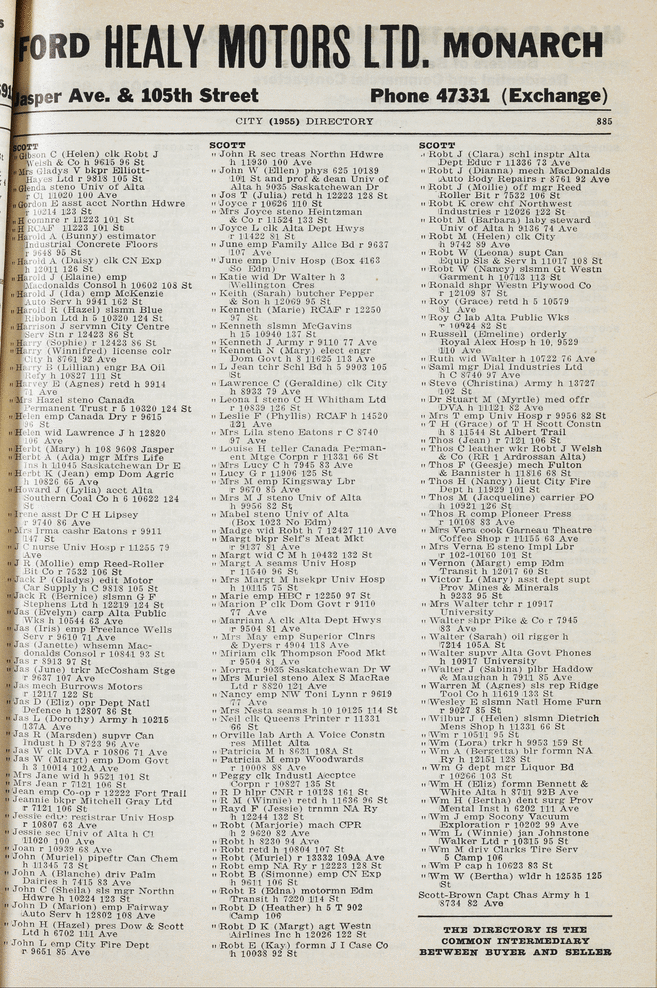 FORD HEALY MOTORS LTD. MONARCH
Jasper Ave. & 105th Street Phone 47331 (Exchange)
CITY (1955) DIRECTORY 885
SCOTT
" Gibson C (Helen) clk Robt J
Welsh & Co h 9615 96 St
" Mrs Gladys V bkpr Elliott-
Hayes Ltd r 9818 105 St
" Glenda steno Univ of Alta
r C1 11020 100 Ave
" Gordon E asst acct Northn Hdwre
r 10214 123 St
" H comnre r 11223 101 St
" H RCAF 11223 101 St
" Harold A (Bunny) estimator
Industrial Concrete Floors
r 9648 95 St
" Harold A (Daisy) clk CN Exp
h 12011 126 St
" Harold J (Elaine) emp
Macdonalds Consol h 10602 108 St
" Harold J (Ida) emp McKenzie
Auto Serv h 9941 162 St
" Harold R (Hazel) slsmn Blue
Ribbon Ltd h 5 10320 124 St
" Harrison J servmn City Centre
Serv Stn r 12423 86 St
" Harry (Sophie) r 12423 86 St
" Harry (Winnifred) license colr
City h 8761 92 Ave
" Harry B (Lillian) engr BA Oil
Refy h 10827 111 St
" Harvey E (Agnes) retd h 9914
71 Ave
" Mrs Hazel steno Canada
Permanent Trust r 5 10320 124 St
" Helen emp Canada Dry r 9615
96 St
" Helen wid Lawrence J h 12820
106 Ave
" Herbt (Mary) h 108 9608 Jasper
" Herbt A (Ada) mgr Mfrs Life
Ins h 11045 Saskatchewan Dr E
" Herbt K (Jean) emp Dom Agric
h 10826 65 Ave
" Howard J (Lylia) acct Alta
Southern Coal Co h 6 10622 124
St
" Irene asst Dr C H Lipsey
r 9740 86 Ave
" Mrs Irma cashr Eatons r 9911
147 St
" J C nurse Univ Hosp r 11255 79
Ave
" J R (Mollie) emp Reed-Roller
Bit Co r 7532 106 St
" Jack P (Gladys) edit Motor
Car Supply h C 9818 105 St
" Jack R (Bernice) slsmn G F
Stephens Ltd h 12219 124 St
" Jas (Evelyn) carp Alta Public
Wks h 10544 63 Ave
" Jas (Iris) emp Freelance Wells
Serv r 9610 71 Ave
" Jas (Janette) whsemn Mac-
donalds Consol r 10841 93 St
" Jas r 8913 97 St
" Jas (June) trkr McCosham Stge
r 9637 107 Ave
" Jas mech Burrows Motors
r 12117 122 St
" Jas D (Eliz) opr Dept Natl
Defence h 12807 86 St
" Jas L (Dorothy) Army h 10215
137A Ave
" Jas R (Marsden) supvr Can
Indust h D 8723 96 Ave
" Jas W clk DVA r 10806 71 Ave
" Jas W (Margt) emp Dom Govt
h 3 10014 102A Ave
" Mrs Jane wid h 9521 101 St
" Mrs Jean r 7121 106 St
" Jean emp Co-op r 12222 Fort Trail
" Jeannie bkpr Mitchell Gray Ltd
r 7121 106 St
" Jessie educ registrar Univ Hosp
r 10807 63 Ave
" Jessie sec Univ of Alta h C1
11020 100 Ave
" Joan r 10939 68 Ave
" John (Muriel) pipeftr Can Chem
h 11345 73 St
" John A (Blanche) driv Palm
Dairies h 7415 83 Ave
" John C (Sheila) sls mgr Northn
Hdwre h 10224 123 St
" John D (Marion) emp Fairway
Auto Serv h 12802 108 Ave
" John H (Hazel) pres Dow & Scott
Ltd h 6702 111 Ave
" John L emp City Fire Dept
r 9651 85 Ave
SCOTT
" John R sec treas Northn Hdwre
h 11930 100 Ave
" John W (Ellen) phys 625 10189
101 St and prof & dean Univ of
Alta h 9035 Saskatchewan Dr
" Jos T (Julia) retd h 12223 128 St
" Joyce r 10626 110 St
" Mrs Joyce steno Heintzman
& Co r 11524 133 St
" Joyce L clk Alta Dept Hwys
r 11422 81 St
" June emp Family Allce Bd r 9637
107 Ave
" June emp Univ Hosp (Box 4163
So Edm)
" Katie wid Dr Walter h 3
Wellington Cres
" Keith (Sarah) butcher Pepper
& Son h 12069 95 St
" Kenneth (Marie) RCAF r 12250
97 St
" Kenneth slsmn McGavins
h 15 10940 137 St
" Kenneth J Army r 9110 77 Ave
" Kenneth N (Mary) elect engr
Dom Govt h 8 11625 113 Ave
" L Jean tchr Schl Bd h 5 9903 105
St
" Lawrence C (Geraldine) clk City
h 8933 79 Ave
" Leona I steno C H Whitham Ltd
r 10839 126 St
" Leslie F (Phyllis) RCAF h 14520
121 Ave
" Mrs Lila steno Eatons r C 8740
97 Ave
" Louise H teller Canada Perman-
ent Mtge Corpn r 11331 66 St
" Mrs Lucy C h 7945 83 Ave
" Lucy G r 11906 125 St
" Mrs M emp Kingsway Lbr
r 9670 85 Ave
" Mrs M J steno Univ of Alta
h 9956 82 St
" Mabel steno Univ of Alta
(Box 1023 No Edm)
" Madge wid Robt h 7 12427 110 Ave
" Margt bkpr Self's Meat Mkt
r 9137 81 Ave
" Margt wid C M h 10432 132 St
" Margt A seams Univ Hosp
r 11540 96 St
" Mrs Margt M hsekpr Univ Hosp
h 10115 75 St
" Marie emp HBC r 12250 97 St
" Marion P clk Dom Govt r 9110
77 Ave
" Marriam A clk Alta Dept Hwys
r 9504 81 Ave
" Mrs May emp Superior Clnrs
& Dyers r 4904 118 Ave
" Miriam clk Thompson Food Mkt
r 9504 81 Ave
" Morra r 9035 Saskatchewan Dr W
" Mrs Muriel steno Alex S MacRae
Ltd r 8820 121 Ave
" Nancy emp NW Tonl Lynn r 9619
77 Ave
" Mrs Nesta seams h 10 10125 114 St
" Neil clk Queens Printer r 11331
66 St
" Orville lab Arth A Voice Constn
res Millet Alta
" Patricia M h 8631 108A St
" Patricia M emp Woodwards
r 10008 88 Ave
" Peggy clk Industl Acceptce
Corpn r 10827 135 St
" R D hlpr CNR r 10128 161 St
" R M (Winnie) retd h 11636 96 St
" Rayd F (Jessie) trnmn NA Ry
h 12244 132 St
" Robt (Marjorie) mach CPR
h 2 9620 82 Ave
" Robt h 8230 94 Ave
" Robt retd h 10804 107 St
" Robt (Muriel) r 13332 109A Ave
" Robt emp NA Ry r 12223 128 St
" Robt B (Simonne) emp CN Exp
h 9611 106 St
" Robt B (Edna) motormn Edm
Transit h 7220 114 St
" Robt D (Heather) h 5 T 902
Camp 106
" Robt D K (Margt) agt Westn
Airlines Inc h 12026 122 St
" Robt E (Kay) formn J I Case Co
h 10038 92 St
SCOTT
" Robt J (Clara) schl insptr Alta
Dept Educ r 11336 73 Ave
" Robt J (Dianna) mech MacDonalds
Auto Body Repairs r 8761 92 Ave
" Robt J (Mollie) off mgr Reed
Roller Bit r 7532 106 St
" Robt K crew chf Northwest
Industries r 12026 122 St
" Robt M (Barbara) laby steward
Univ of Alta h 9136 74 Ave
" Robt M (Helen) clk City
h 9742 89 Ave
" Robt W (Leona) supt Can
Equip Sls & Serv h 11017 108 St
" Robt W (Nancy) slsmn Gt Westn
Garment h 10713 113 St
" Ronald shpr Westn Plywood Co
r 12109 97 St
" Roy (Grace) retd h 5 10579
81 Ave
" Roy C lab Alta Public Wks
r 10924 82 St
" Russell (Emeline) orderly
Royal Alex Hosp h 10, 9529
110 Ave
" Ruth wid Walter h 10722 76 Ave
" Saml mgr Dial Industries Ltd
h C 8740 97 Ave
" Steve (Christina) Army h 13727
102 St
" Dr Stuart M (Myrtle) med offr
DVA h 11121 82 Ave
" Mrs T emp Univ Hosp r 9956 82 St
" T H (Grace) of T H Scott Constn
h 8 11544 St Albert Trail
" Thos (Jean) r 7121 106 St
" Thos C leather wkr Robt J Welsh
& Co (RR 1 Ardrossan Alta)
" Thos F (Geesje) mech Fulton
& Bannister h 11816 68 St
" Thos H (Nancy) lieut City Fire
Dept h 11929 101 St
" Thos M (Jacqueline) carrier PO
h 10921 126 St
" Thos R comp Pioneer Press
r 10108 83 Ave
" Mrs Vera cook Garneau Theatre
Coffee Shop r 11155 63 Ave
" Mrs Verna E steno Impl Lbr
r 102-10160 101 St
" Vernon (Margt) emp Edm
Transit h 12017 60 St
" Victor L (Mary) asst dept supt
Prov Mines & Minerals
h 9233 95 St
" Mrs Walter tchr r 10917
University
" Walter shpr Pike & Co r 7945
83 Ave
" Walter (Sarah) oil rigger h
7214 105A St
" Walter supvr Alta Govt Phones
h 10917 University
" Walter J (Sabina) plbr Haddow
& Maughan h 7911 85 Ave
" Warren M (Agnes) sls rep Ridge
Tool Co h 11619 133 St
" Wesley E slsmn Natl Home Furn
r 9027 85 St
" Wilbur J (Helen) slsmn Dietrich
Mens Shop h 11331 66 St
" Wm r 10511 95 St
" Wm (Lora) trkr h 9953 159 St
" Wm A (Bergetta) blr formn NA
Ry h 12151 128 St
" Wm G dept mgr Liquor Bd
r 10266 103 St
" Wm H (Eliz) formn Bennett &
White Alta h 8711 92B Ave
" Wm H (Bertha) dent surg Prov
Mental Inst h 6202 111 Ave
" Wm J emp Socony Vacuum
Exploration r 10202 99 Ave
" Wm L (Winnie) jan Johnstone
Walker Ltd r 10315 95 St
" Wm M driv Clarks Tire Serv
5 Camp 106
" Wm P cap h 10623 83 St
" Wm W (Bertha) wldr h 12535 125
St
Scott-Brown Capt Chas Army h 1
8734 82 Ave
THE DIRECTORY IS THE
COMMON INTERMEDIARY
BETWEEN BUYER AND SELLER